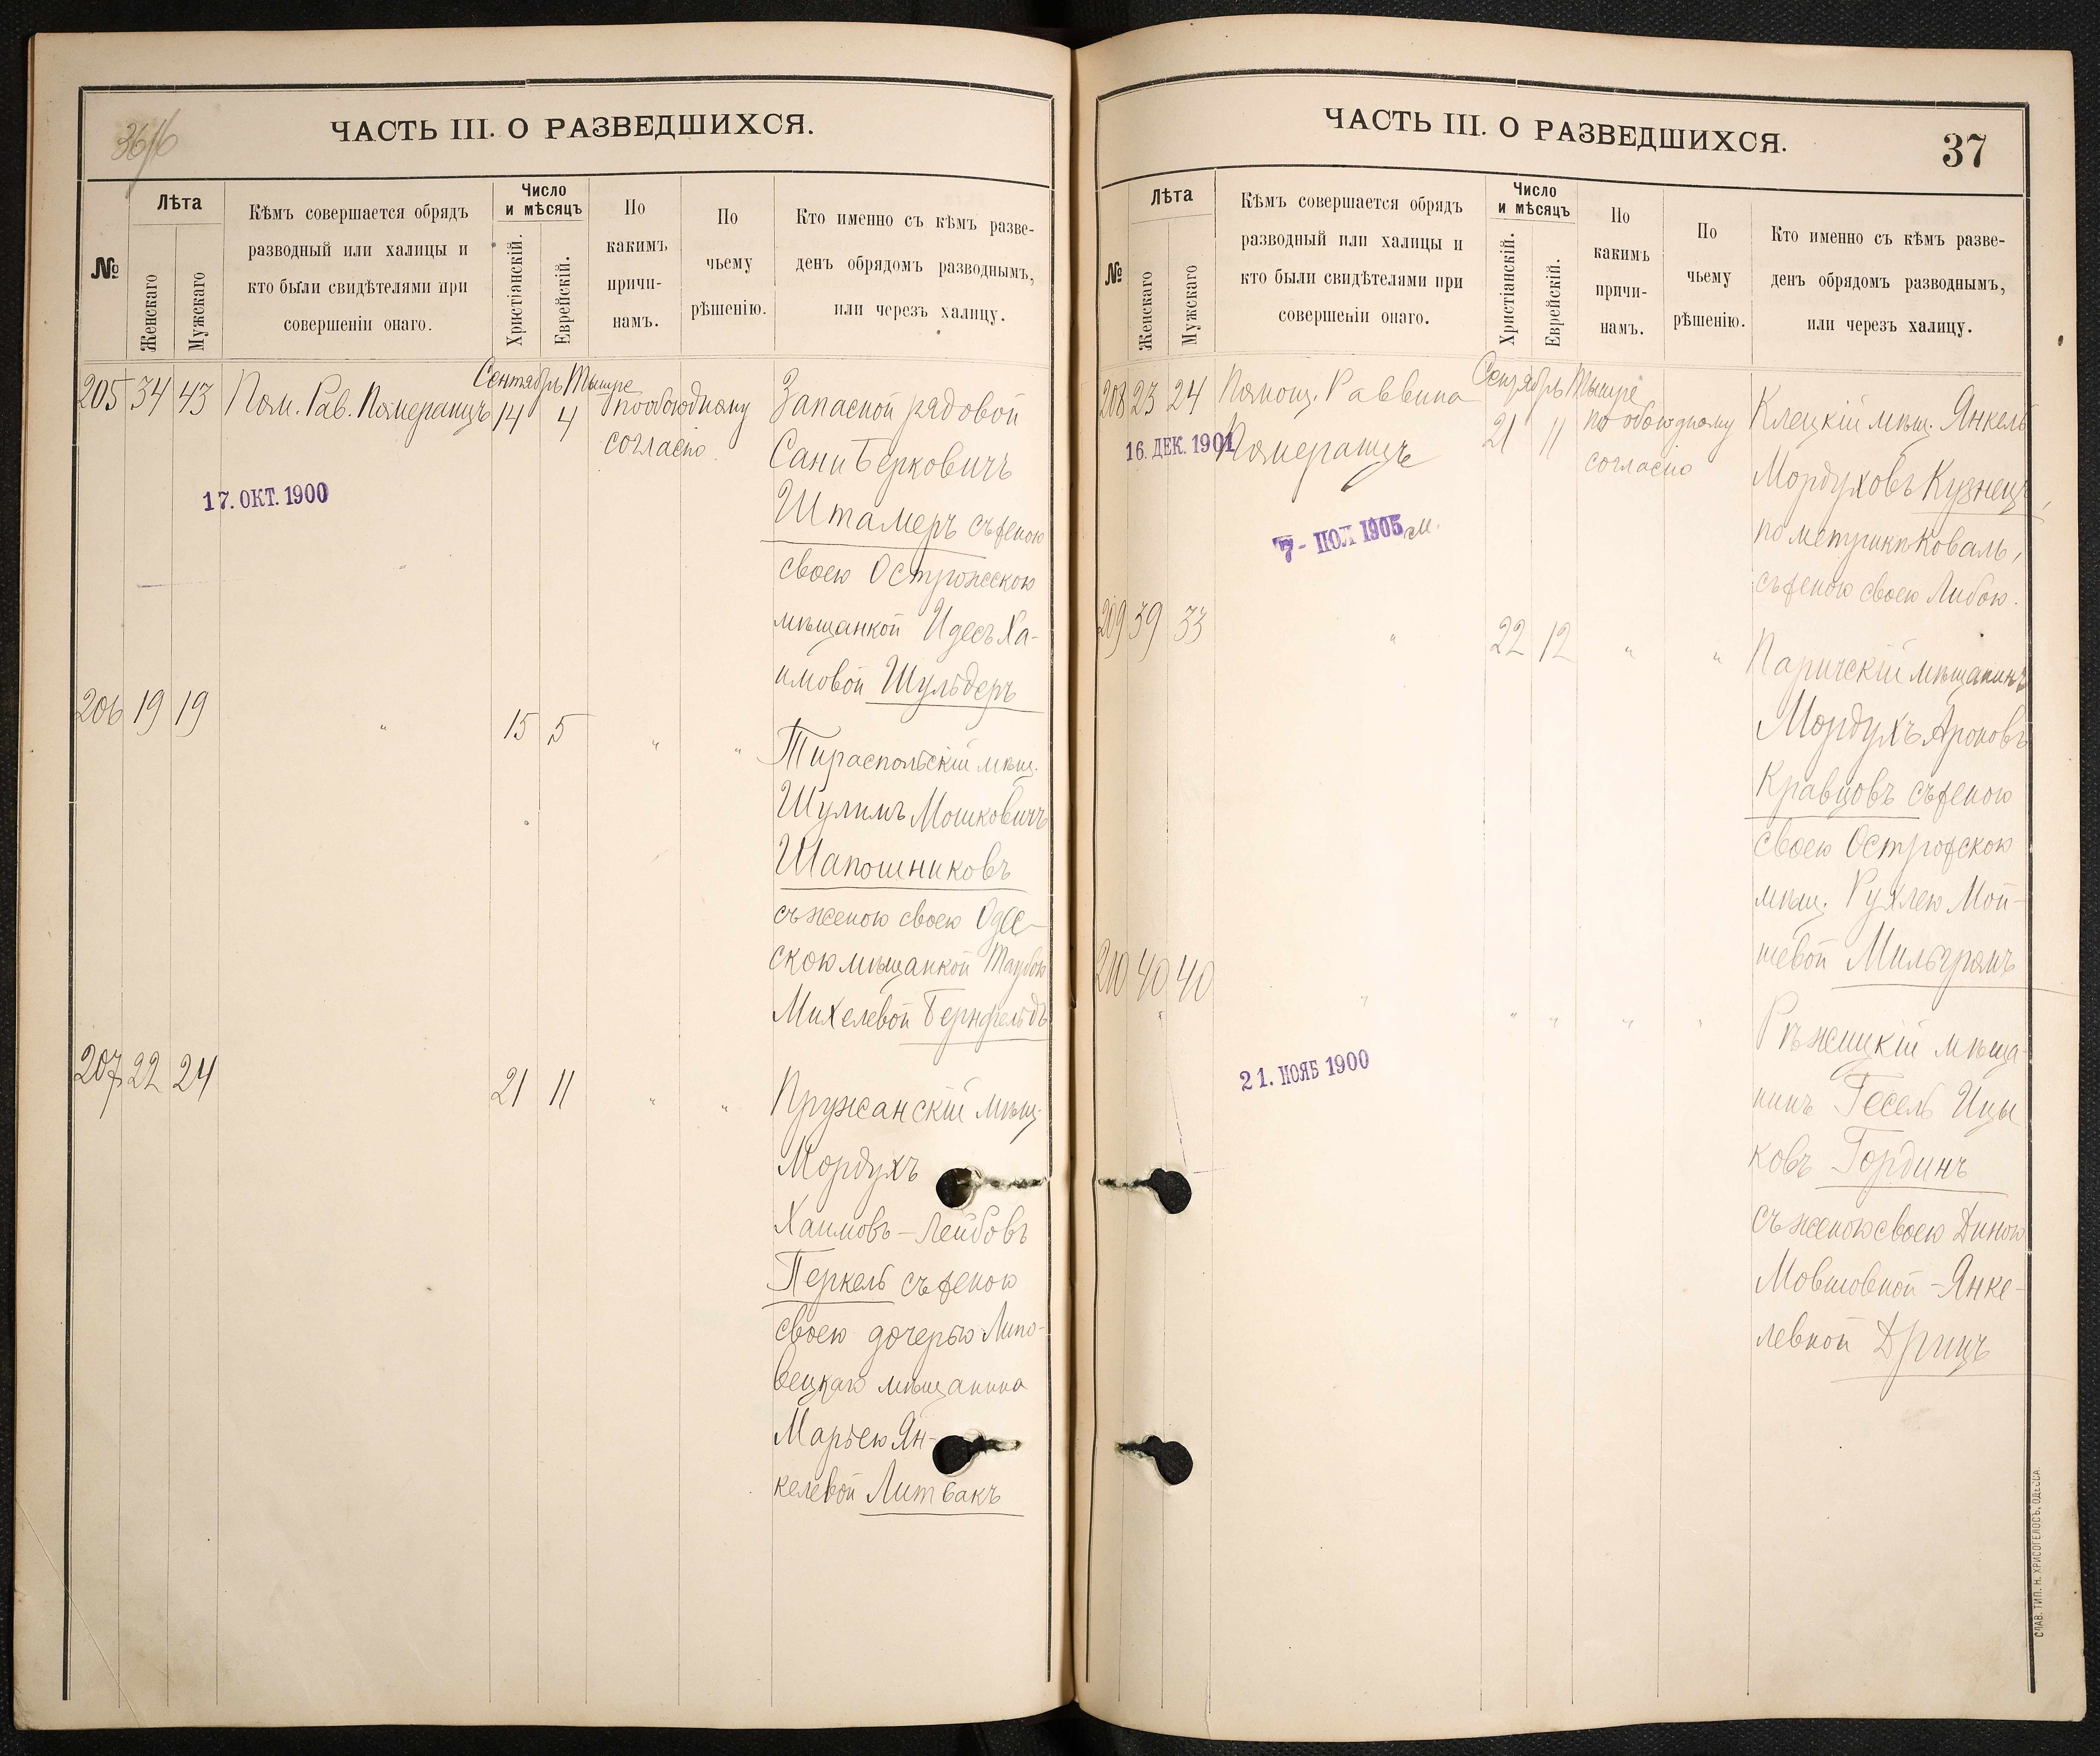 36/б
ЧАСТЬ III. О РАЗВЕДШИХСЯ.
№
Лѣта
Женскаго
Мужскаго
Кѣмъ совершается обрядъ
разводный или халицы и
кто были свидѣтелями при
совершеніи онаго.
Число
и мѣсяцъ
Христіанскій.
Еврейскій.
По
какимъ
причи-
намъ.
По
чьему
рѣшенію.
Кто именно съ кѣмъ разве-
денъ обрядомъ разводнымъ,
или черезъ халицу.
Сентябрь Тишре
205 34 43 Пом. Рав. Померанцъ 14 4 по обоюдному
согласію
17. ОКТ. 1900
Запасной рядовой
Сани Берковичъ
Штамеръ съ женою
своею Острожскою
мѣщанкой Идесъ Ха-
имовой Шульдеръ
206 19 19 " 15 5 " "
Тираспольскій мѣщ.
Шулимъ Мошковичъ
Шапошниковъ
съ женою своею Одес-
скою мѣщанкой Таубою
Михелевой Бернфельдъ
207 22 24 21 11 " "
Пружанскій мѣщ.
Мордухъ
Хаимовъ-Лейбовъ
Перкель съ женою
своею дочерью Липо-
вецкаго мѣщанина
Марьею Ян-
келевой Литвакъ
ЧАСТЬ III. О РАЗВЕДШИХСЯ.
37
№
Лѣта
Женскаго
Мужскаго
Кѣмъ совершается обрядъ
разводный или халицы и
кто были свидѣтелями при
совершеніи онаго.
Число
и мѣсяцъ
Христіанскій.
Еврейскій.
По
какимъ
причи-
намъ.
По
чьему
рѣшенію.
Кто именно съ кѣмъ разве-
денъ обрядомъ разводнымъ,
или черезъ халицу.
Сентябрь Тишре
208 23 24 Помощ. Раввина
Померанцъ 21 11 по обоюдному
согласію
16. ДЕК. 1901
7- ІЮЛ 1905
Клецкій мѣщ. Янкель
Мордуховъ Кузнецъ,
по метрикѣ Коваль,
съ женою своею Либою.
209 39 33 " 22 12 " "
Паричскій мѣщанинъ
Мордухъ Ароновъ
Кравцовъ съ женою
своею Острожскою
мѣщ. Рухлею Мой-
шевой Мильграмъ
210 40 40 " " " " "
21. НОЯБ 1900
Рѣжицкій мѣща-
нинъ Гесель Ицы
ковъ Гординъ
съ женою своею Диною
Мовшовной-Янке-
левной Дрицъ
СЛАВ. ТИП. Н. ХРИСОГЕЛОСЪ, ОДЕССА.